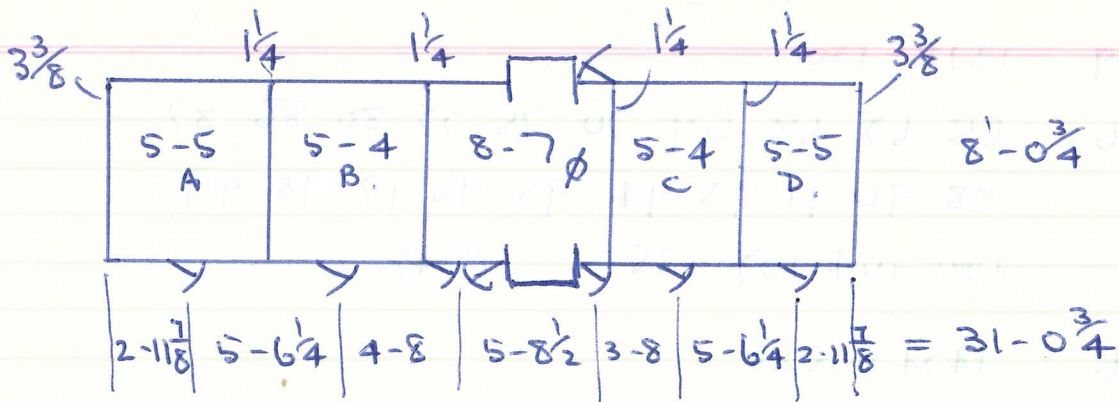 3 3/8 1 1/4 1 1/4 1 1/4 1 1/4 3 3/8
5-5 5-4 8-7 ø 5-4 5-5 8'-0 3/4
A B. C D.
2-11 7/8 5-6 1/4 4-8 5-8 1/2 3-8 5-6 1/4 2-11 7/8 = 31-0 3/4